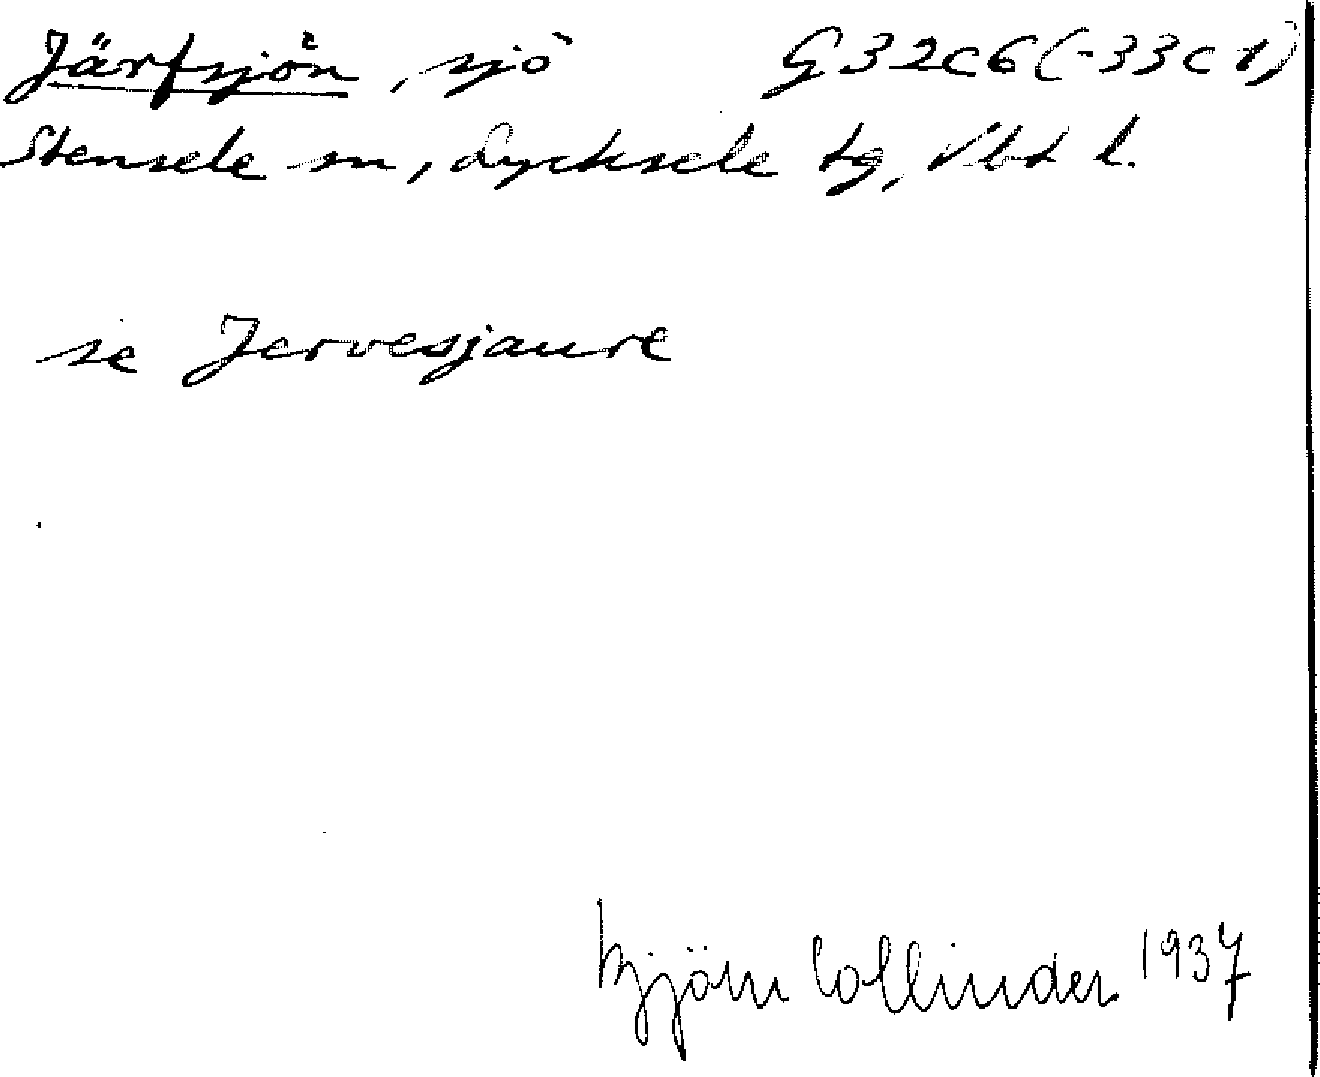 Järfsjön, sjö G32c6(-33c1)
Stensele sn, Lycksele tg, Vbt l.
se Jervesjaure
Björn Collinder 1937